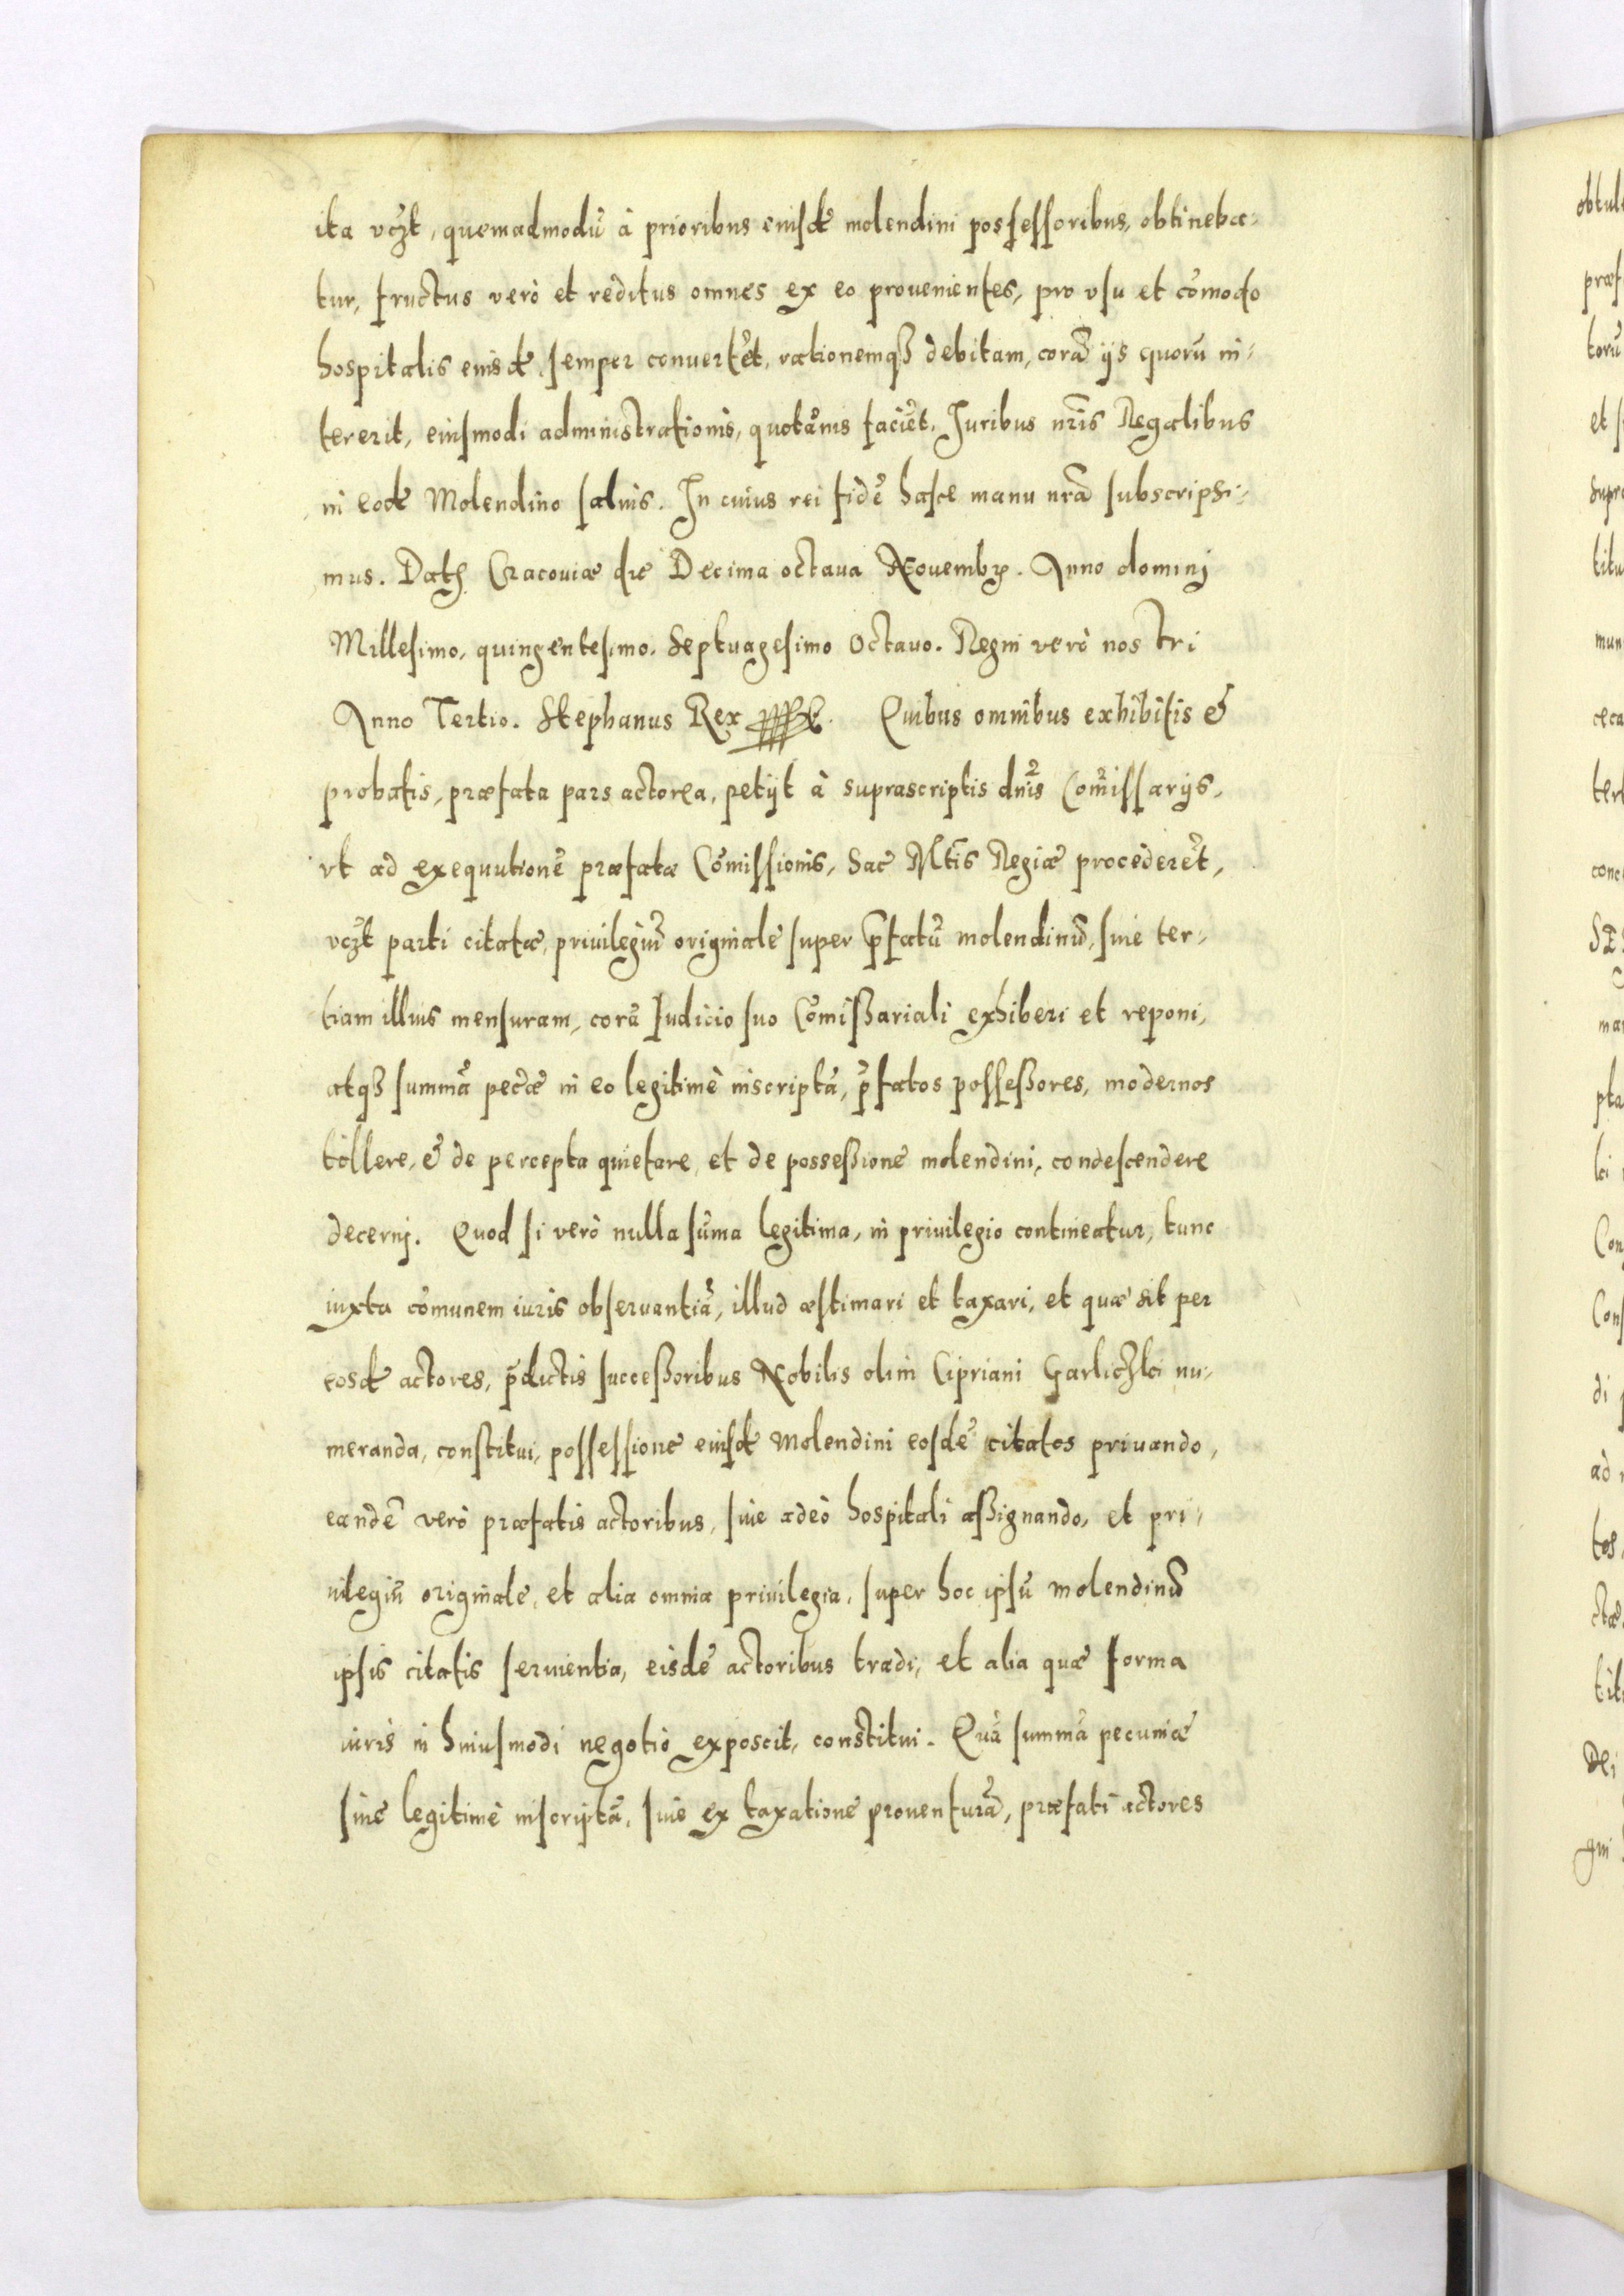 ita vcz̃t, quemadmodũ à prioribus eiusdẽ molendini possessoribus, obtineba-
tur, fructus verò et reditus omnes ex eo prouenientes, pro vsu et cõmodo
hospitalis eiusdẽ semper conuertẽt, rationemqȝ debitam, corã ijs quorũ in-
tererit, eiusmodi administrationis, quotãnis faciẽt. Juribus nr̃is Regalibus
in eodẽ Molendino saluis. In cuius rei fidẽ hasce manu nr̃a subscripsi-
mus. Dat. Cracouiæ die Decima octaua Nouembr. Anno dominj
Millesimo, quingentesimo. Septuagesimo Octauo. Regni verò nostri
Anno Tertio. Stephanus Rex Quibus omnibus exhibitis &
probatis, præfata pars actorea, petijt à suprascriptis dñis Com̃issarijs,
vt ad exequutionẽ præfatæ Cõmissionis, Sac̃ Mt̃is Regiæ procederẽt,
vcz̃t parti citatæ, priuilegiũ originale super p̃fatũ molendinũ, siue ter-
tiam illius mensuram, corã Iudicio suo Cõmißariali exhiberi et reponi,
atqȝ summã pec̃æ in eo legitimè inscriptã, p̃fatos posseßores, modernos
tollere, & de percepta quietare, et de posseßione molendini, condescendere
decernj. Quod si verò nulla sũma legitima, in priuilegio contineatur, tunc
iuxta cõmunem iuris obseruantiã, illud æstimari et taxari, et quæ sit per
eosdẽ actores, p̃dictis succeßoribus Nobilis olim Cipriani Garliczki nu-
meranda, constitui, possessione eiusdẽ Molendini eosdẽ citatos priuando,
eandẽ verò præfatis actoribus, siue adeò hospitali aßignando, et pri-
uilegiũ originale, et alia omnia priuilegia, super hoc ipsũ molendinũ
ipsis citatis seruientia, eisdẽ actoribus tradi, et alia quæ forma
iuris in huiusmodi negotio exposcit, constitui. Quã summã pecuniæ
siue legitimè inscriptã, siue ex taxatione prouenturã, præfati actores